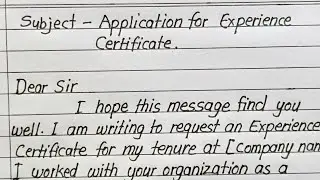 Subject - Application for Experience
Certificate.
Dear Sir
I hope this message find you
well. I am writing to request an Experience
Certificate for my tenure at [Company nam
I worked with your organization as a